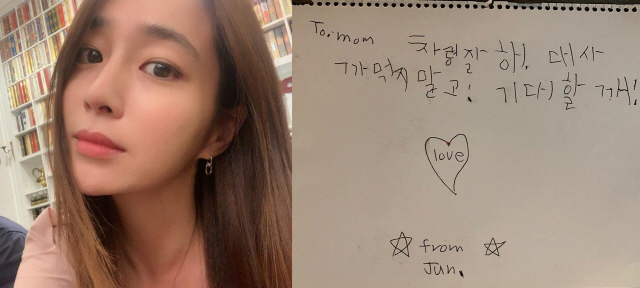 To. mom 차령잘 해! 대사
까먹지 말고! 기다릴 게!
love
from
Jun.